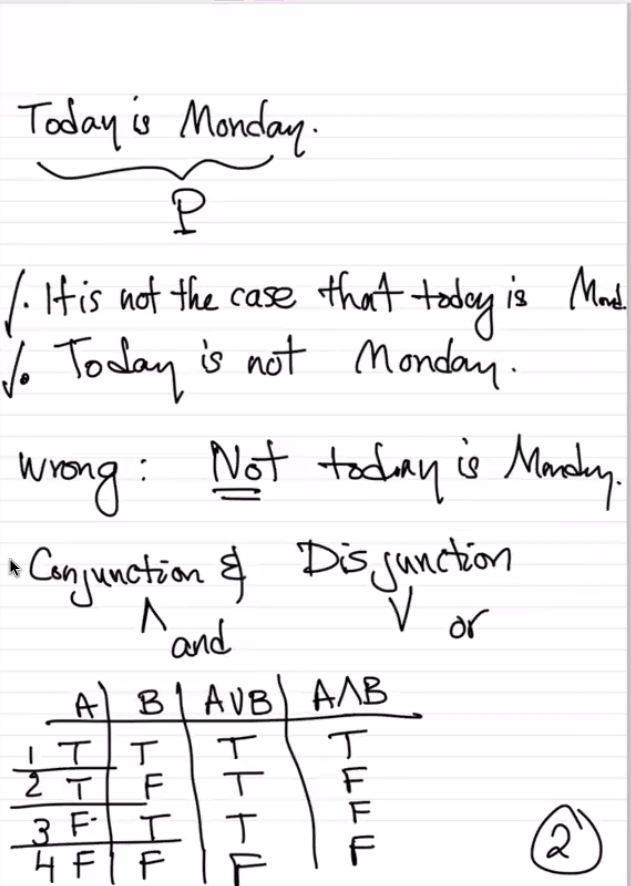 Today is Monday.
P
. It is not the case that today is Mond.
. Today is not Monday.
wrong: Not today is Monday.
Conjunction & Disjunction
∧ and ∨ or
A B A∨B A∧B
1 T T T T
2 T F T F
3 F T T F
4 F F F F
2